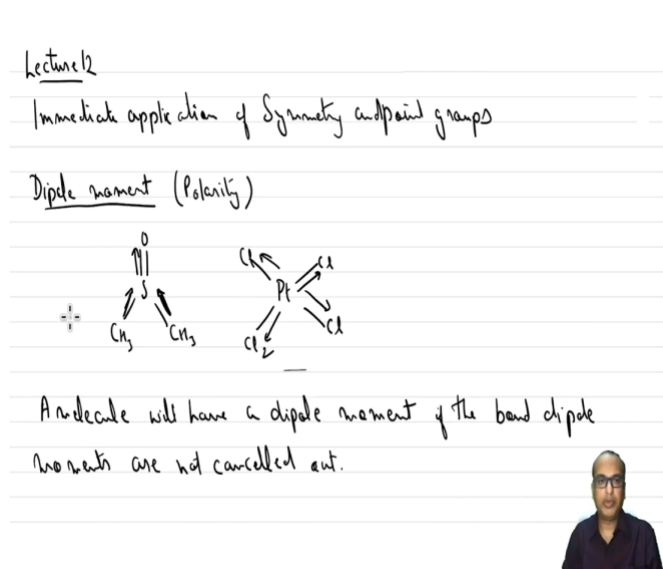 Lecture 12
Immediate application of Symmetry and point groups
Dipole moment (Polarity)
O
S
CH3 CH3
Cl Cl
Pt
Cl Cl
2-
A molecule will have a dipole moment if the bond dipole
moments are not cancelled out.